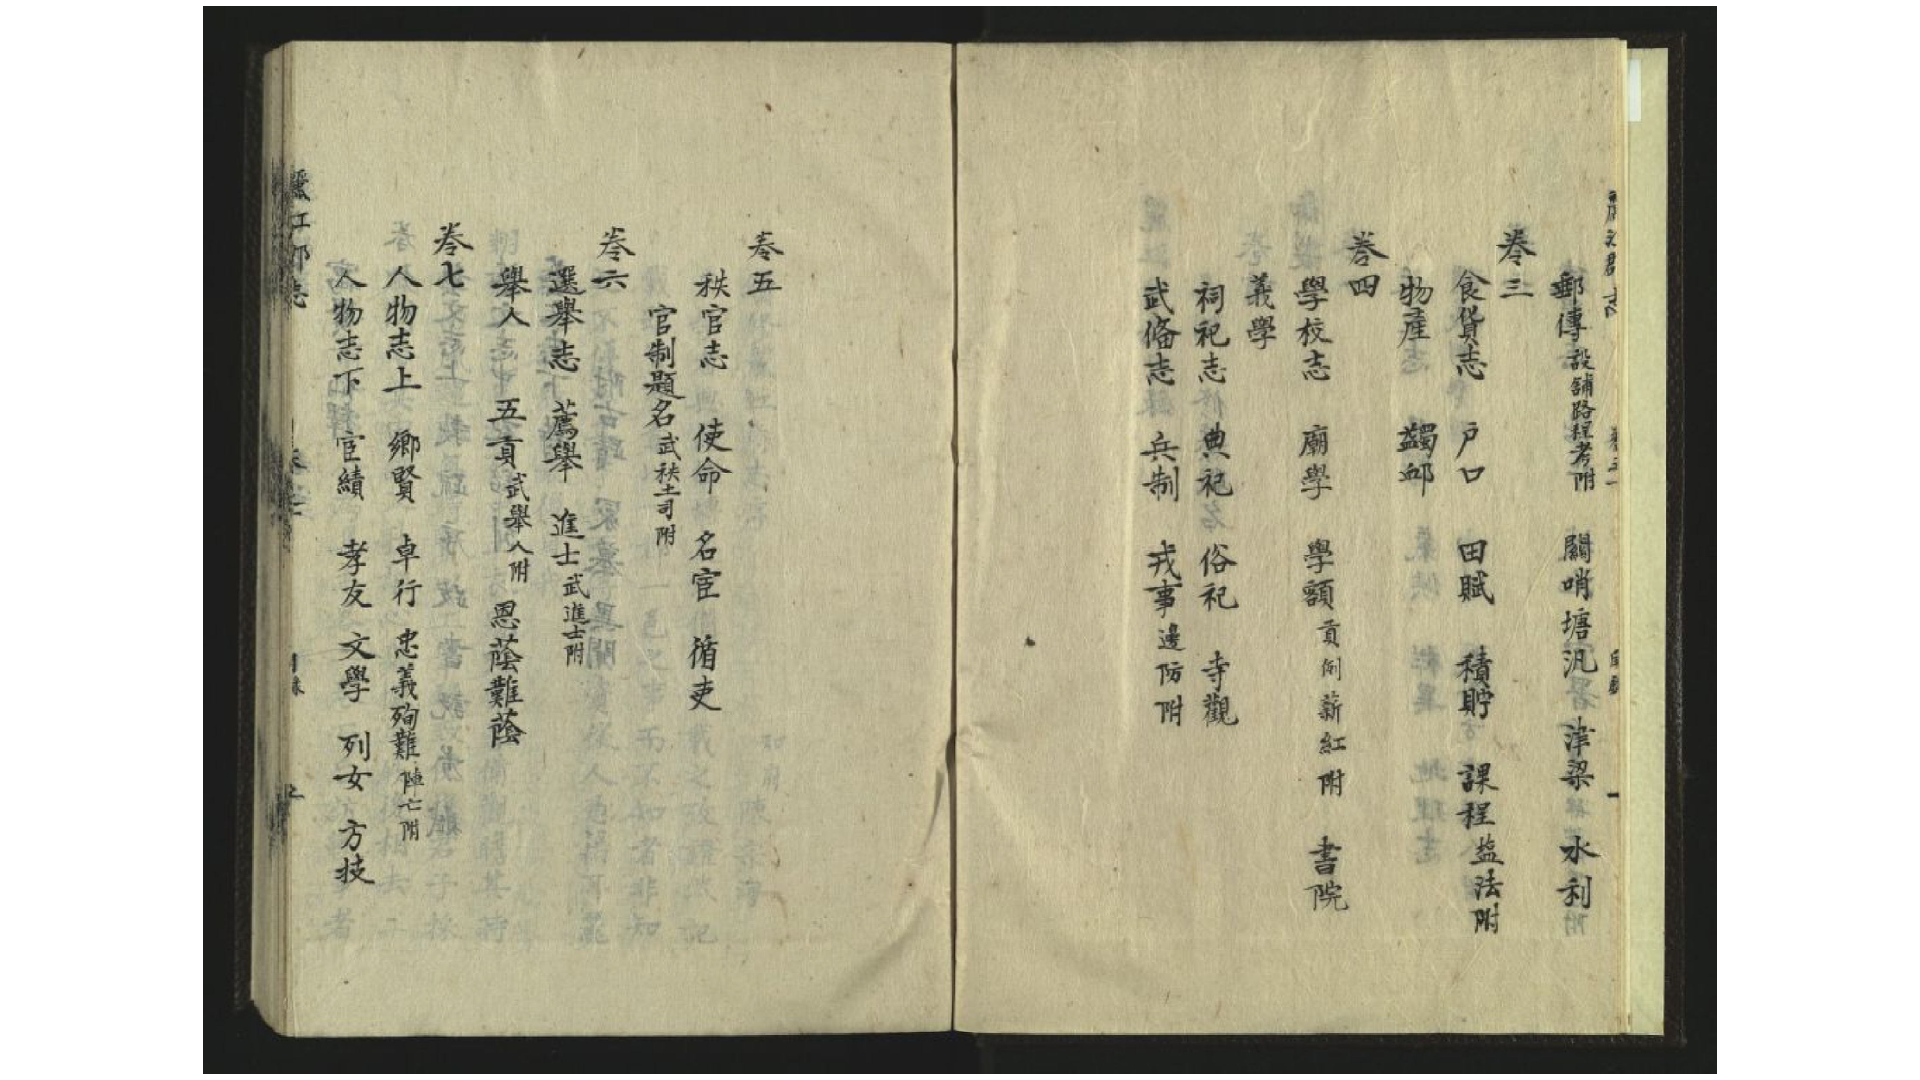 郵傳 設舖路程考附 關哨塘汛 津梁 水利
卷三
食貨志 戶口 田賦 積貯 課程 盐法附
物產 蠲䘏
卷四
學校志 廟學 學額 貢例薪紅附 書院
義學
祠祀志 典祀 俗祀 寺觀
武俻志 兵制 戎事 邊防附
卷五
秩官志 使命 名宦 循吏
官制題名 武秩土司附
卷六
選舉志 薦舉 進士 武進士附
舉人 五貢 武舉人附 恩蔭難蔭
卷七
人物志上 鄉賢 卓行 忠義殉難 陣亡附
人物志下 宦績 孝友 文學 列女 方技
麗江郡志